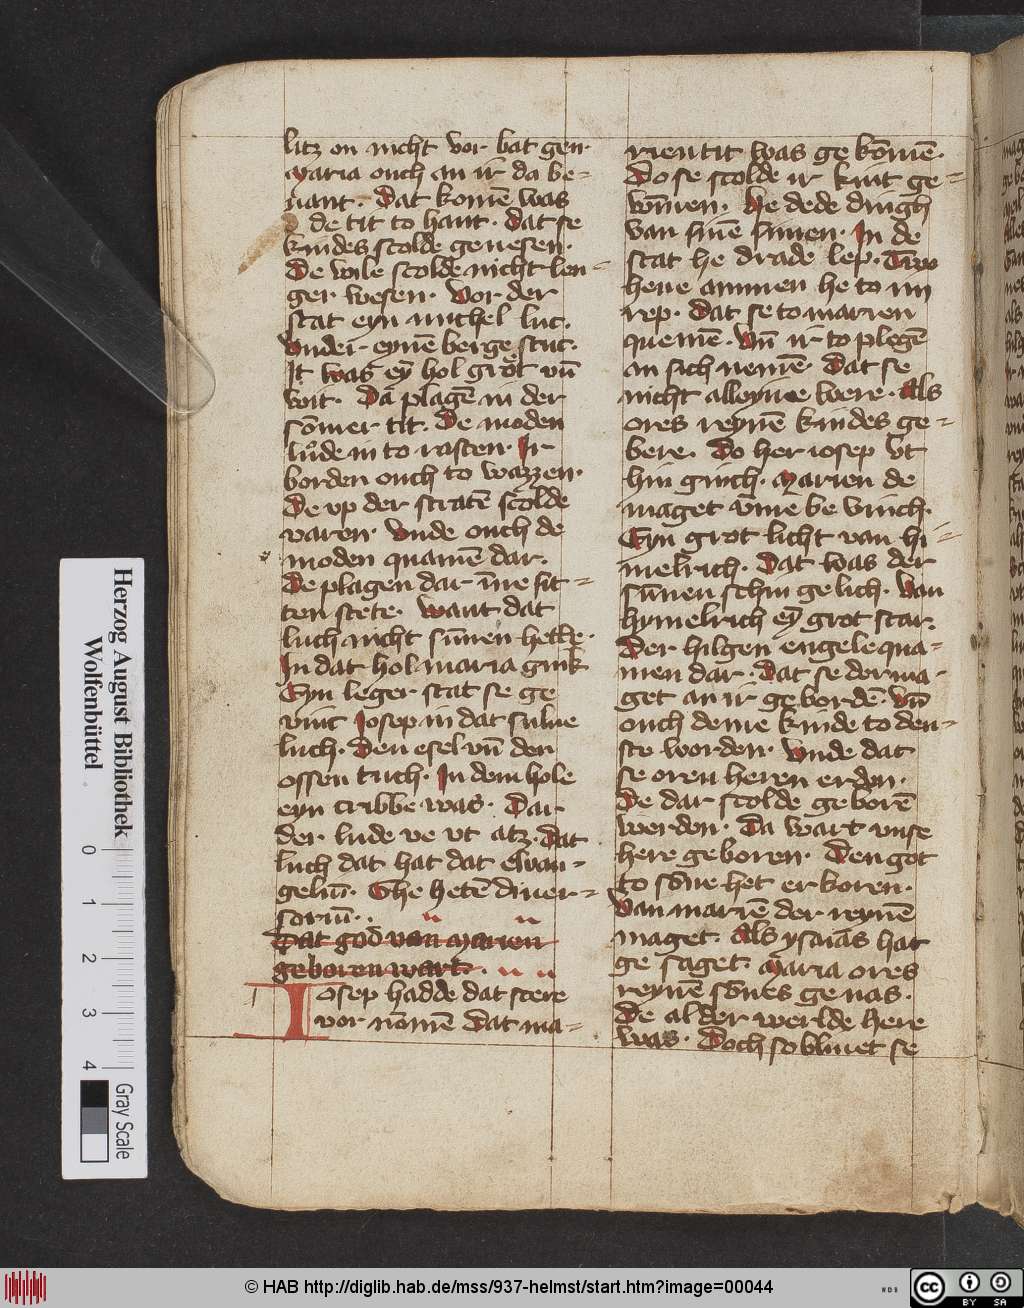 litz on nicht vor bat gen·
Maria ouch an ir da be-
uant· Dat komē was
de tit to hant· Dat se
kindes scolde genesen·
De wile scolde nicht len-
ger wesen· Vor der
stat eyn michel luc·
Vnder eynē berge stuc·
It was eȳ hol grot vn̄
wit· Da plagē in der
sōmer tit· De moden
lude in to rasten· Ir
borden ouch to wazzen·
De vp der stratē scolde
varen· Vnde ouch de
moden quamē dar·
De plagen dar īne sit-
ten stete· Want dat
luch nicht sūnen hette·
In dat hol maria gink
Eyn leger stat se ge
vinc Iosep in dat sulue
luch· Den esel vn̄ den
ossen tuch· In dem hole
eyn cribbe was· Dar
der lude ve vt atz· Dat
luch dat hat dat Ewan-
geliū· The hetē diuer-
soriū·
Dat god van Marien
geboren wart·
Iosep hadde dat stere
vor nomē Dat ma-
rien tit was ge komē·
Do se scolde ir kint ge-
wīnen· He dede dingh
van sinē sinnen· In de
stat he drade lep· Two
heue ammen he to im
rep· Dat se to marien
quemē· Vn̄ ir to plegē
an sich nemē· Dat se
nicht alleyne were· Als
ores reynē kindes ge-
bere· Do her iosep vt
hin ginch· Marien de
maget vmme be vinch·
Eyn grot licht van hi-
melrich· Dat was der
sūnen schin gelich· Van
hymelrich eȳ grot scar·
Der hilgen engele qua-
men dar· Dat se der ma-
get an ir gebordē· Vn̄
ouch deme kinde to den-
ste worden· Vnde dat
se oren heren erden·
De dar scolde geborē
werden· Da wart vnse
here geboren· Den got
to sōne het er koren·
Van mariē der reynē
maget· Als ysaias hat
ge saget· Maria ores
reynē sōnes genas·
De al der werlde here
was· Doch so bliuet se
Herzog August Bibliothek
Wolfenbüttel
0 1 2 3 4
Gray Scale
© HAB http://diglib.hab.de/mss/937-helmst/start.htm?image=00044
WDB
cc BY SA